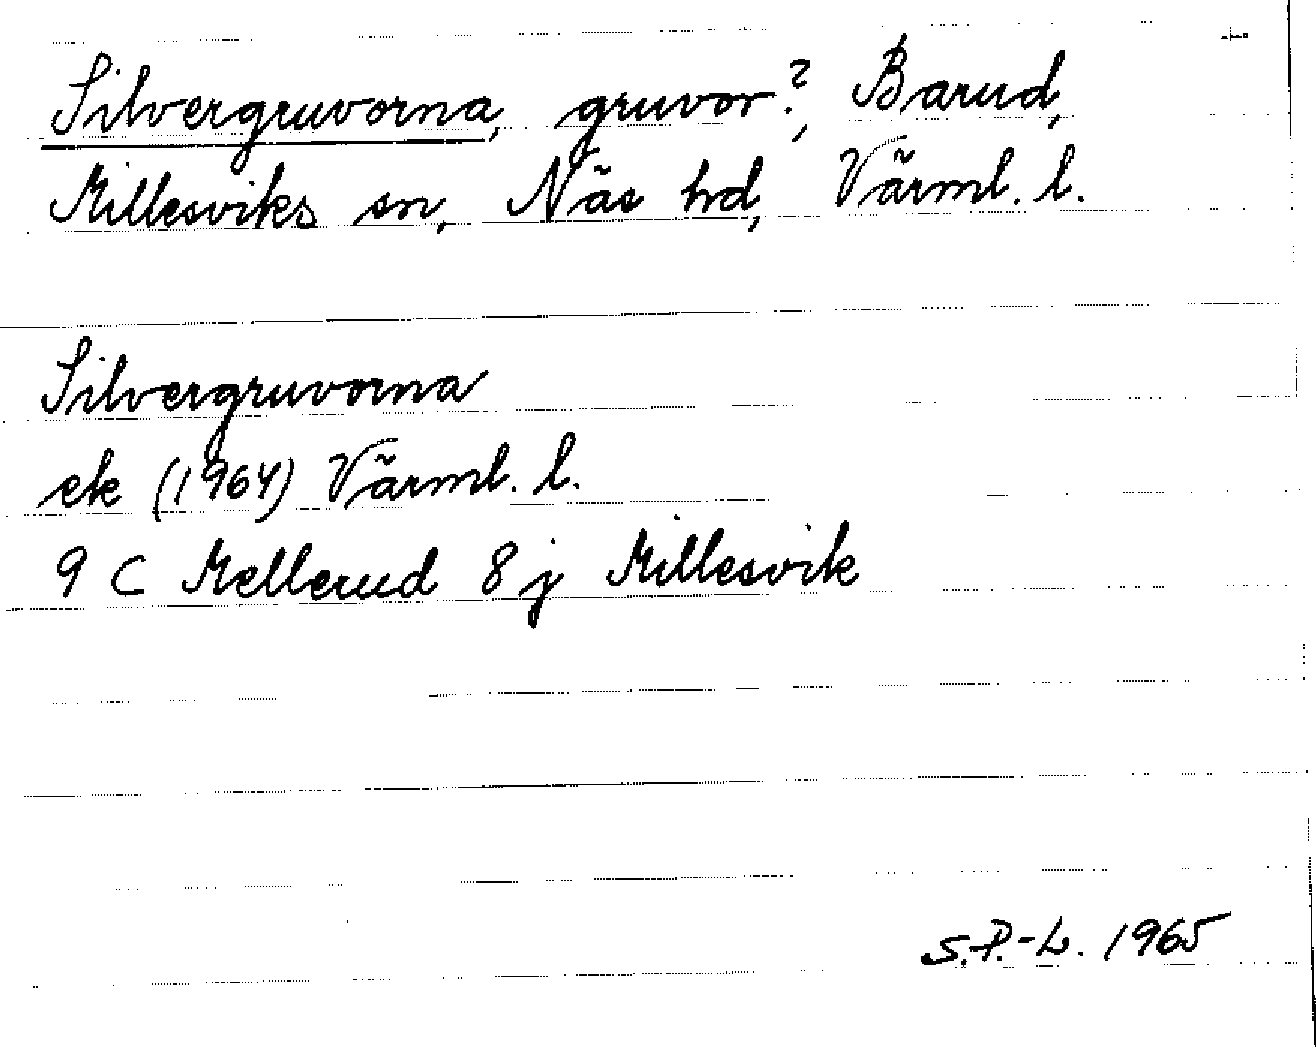 Silvergruvorna, gruvor?, Barud,
Millesviks sn, Näs hd, Värml. l.
Silvergruvorna
ek (1964) Värml. l.
9 C Mellerud 8 j Millesvik
S.P.-L. 1965